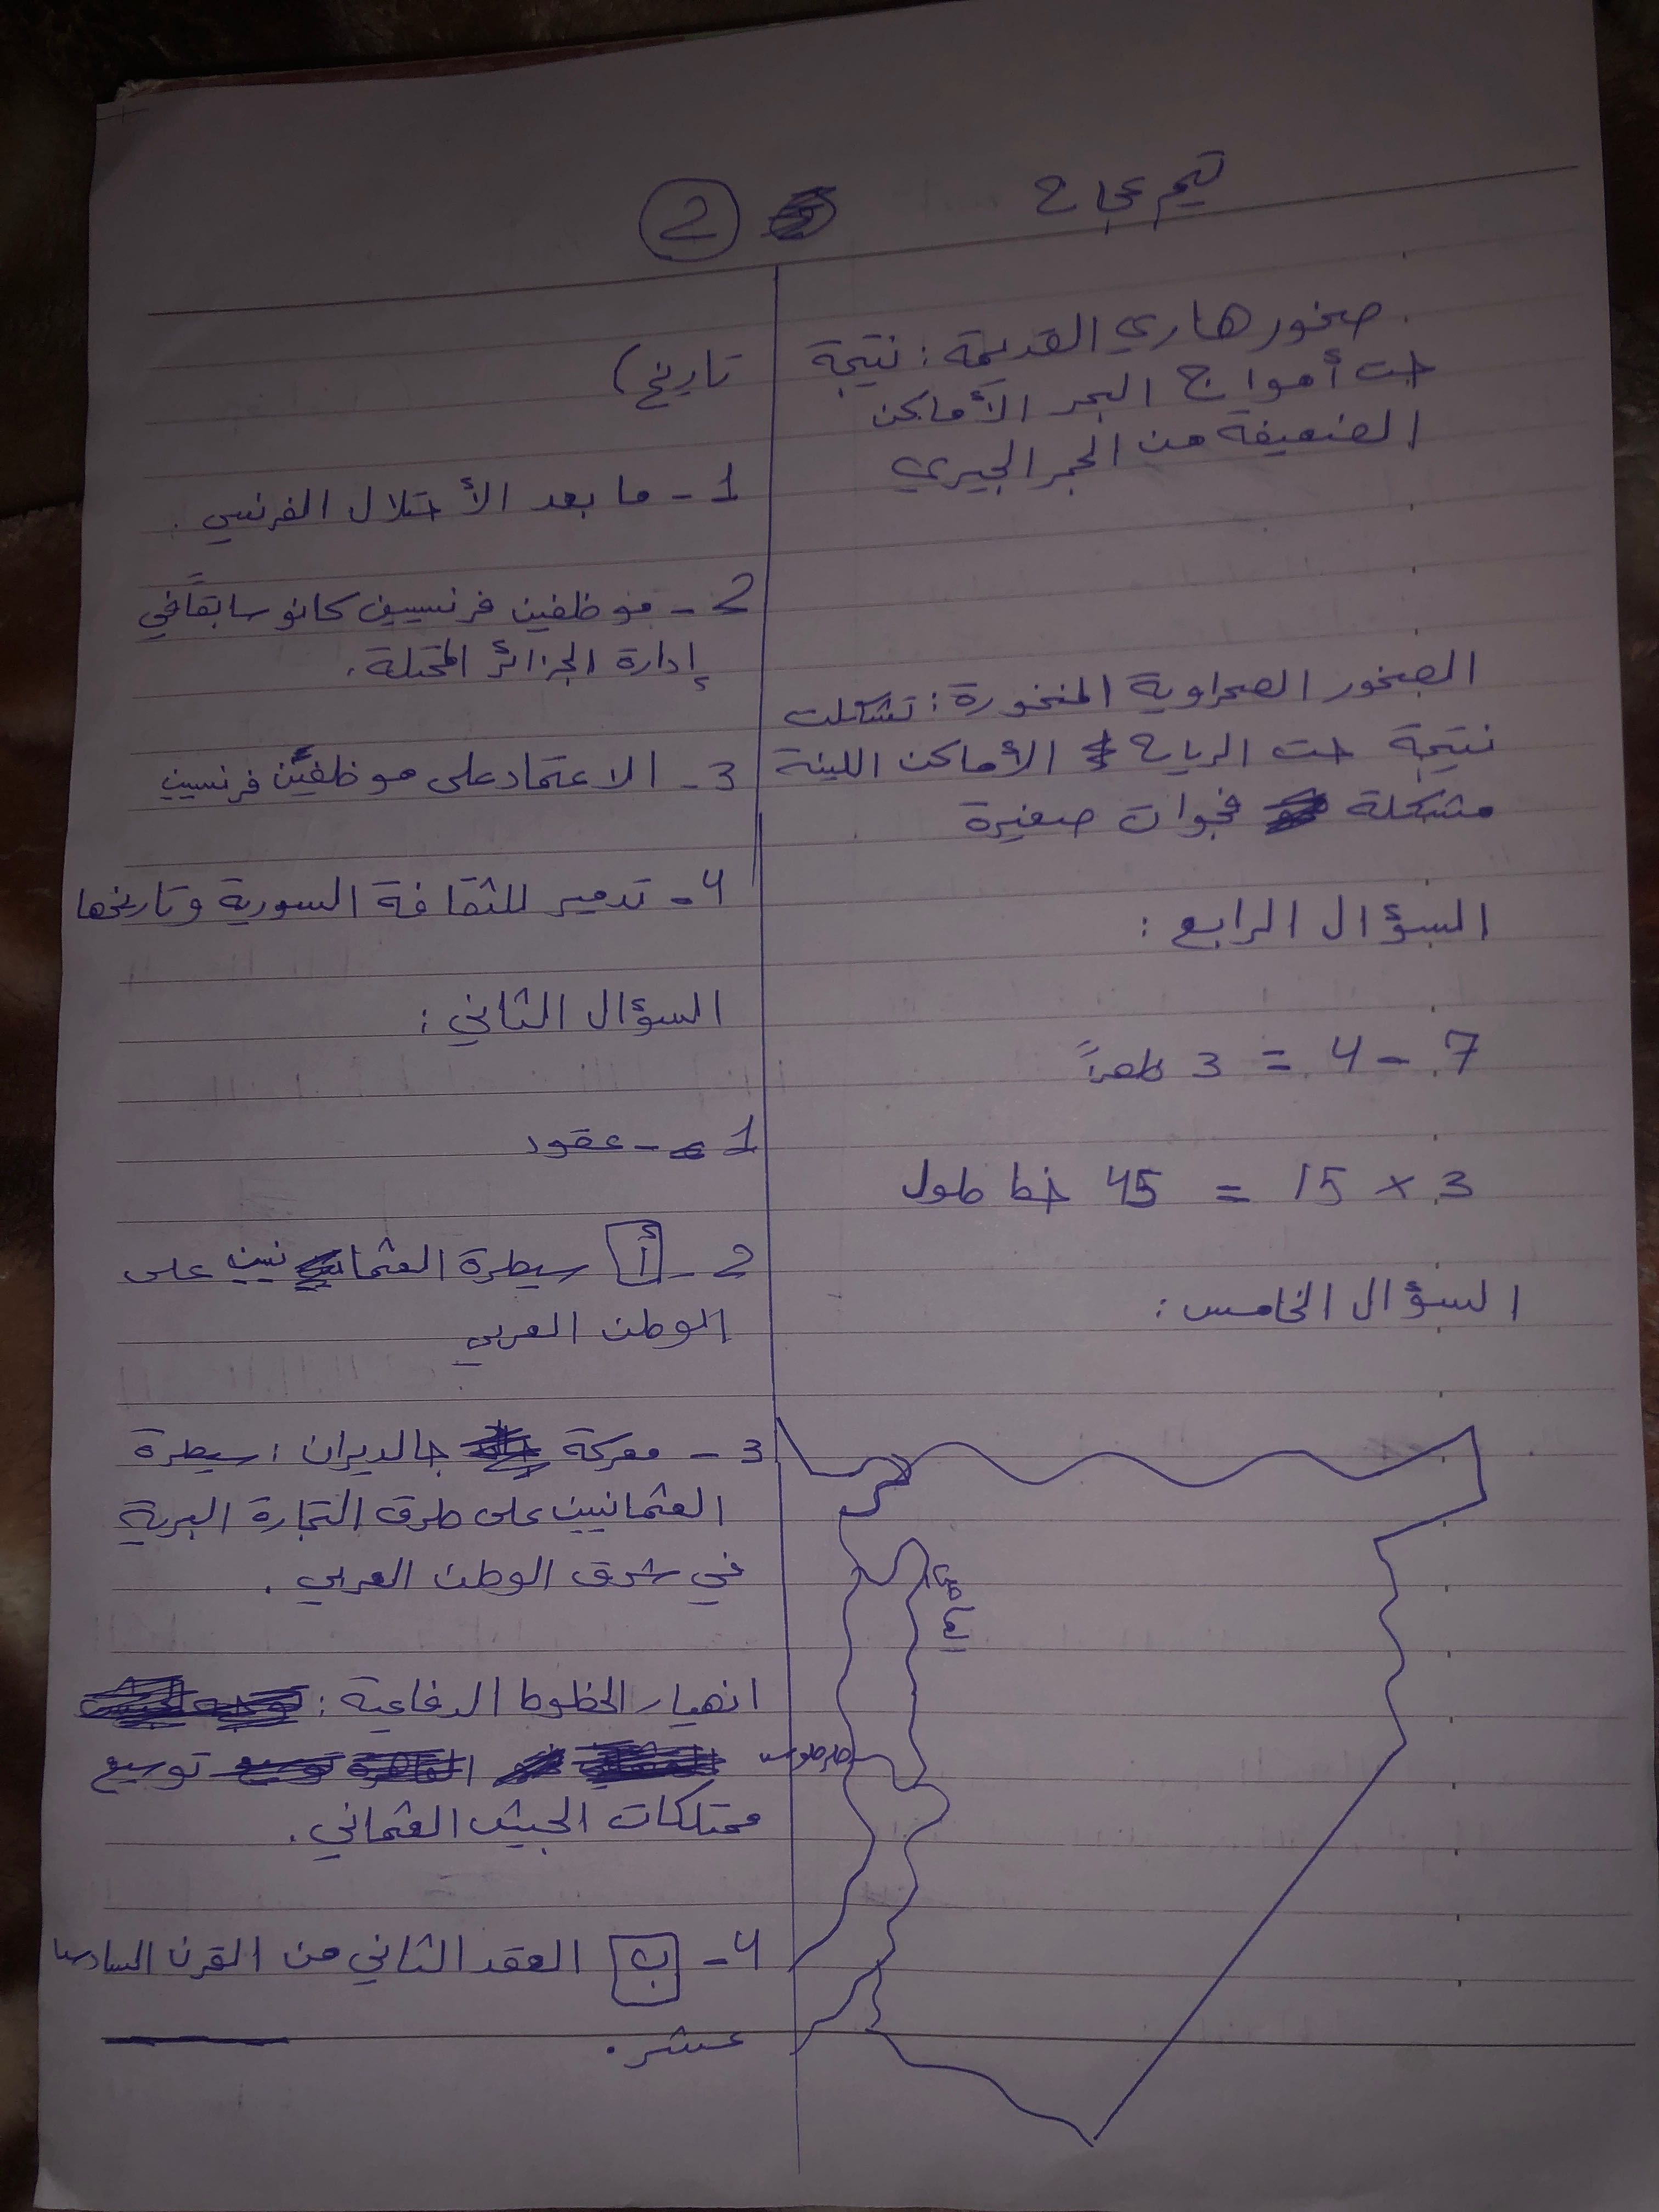 تيم عجاج
2
صخور هاري القديمة : نتيجة
حت أمواج البحر الأماكن
الضعيفة من الحجر الجيري
الصخور الصحراوية المنخورة : تشكلت
نتيجة حت الرياح الأماكن اللينة
مشكلة فجوات صغيرة
السؤال الرابع :
7 - 4 = 3 ظهراً
3 × 15 = 45 خط طول
السؤال الخامس :
طرطوس
تاريخ)
1 - ما بعد الأحتلال الفرنسي .
2 - موظفين فرنسيين كانو سابقاً في
إدارة الجزائر المحتلة .
3 - الاعتماد على موظفين فرنسيين
4 - تدمير للثقافة السورية وتاريخها
السؤال الثاني :
1 - عقود
2 - أ سيطرة العثمانيين على
الوطن العربي
3 - معركة جالديران : سيطرة
العثمانيين على طرق التجارة البرية
في شرق الوطن العربي .
انهيار الخظوط الدفاعية :
توسيع
ممتلكات الجيش العثماني .
4 - ب العقد الثاني من القرن السادس
عشر .